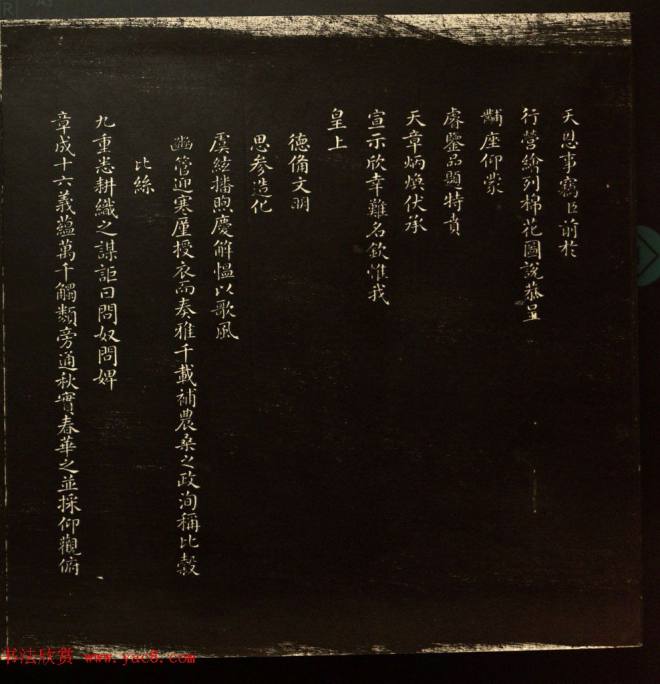 天恩事竊臣前於
行營繪列棉花圖說恭呈
黼座仰蒙
睿鑒品題特賁
天章炳煥伏承
宣示欣幸難名欽惟我
皇上
德備文明
思參造化
虞絃播煦慶解慍以歌風
豳管迎寒厪授衣而奏雅千載補農桑之政洵稱比穀
比絲
九重恚耕織之謀詎曰問奴問婢
章成十六義蘊萬千觸類旁通秋實春華之並採仰觀俯
书法欣赏 www.yac8.com